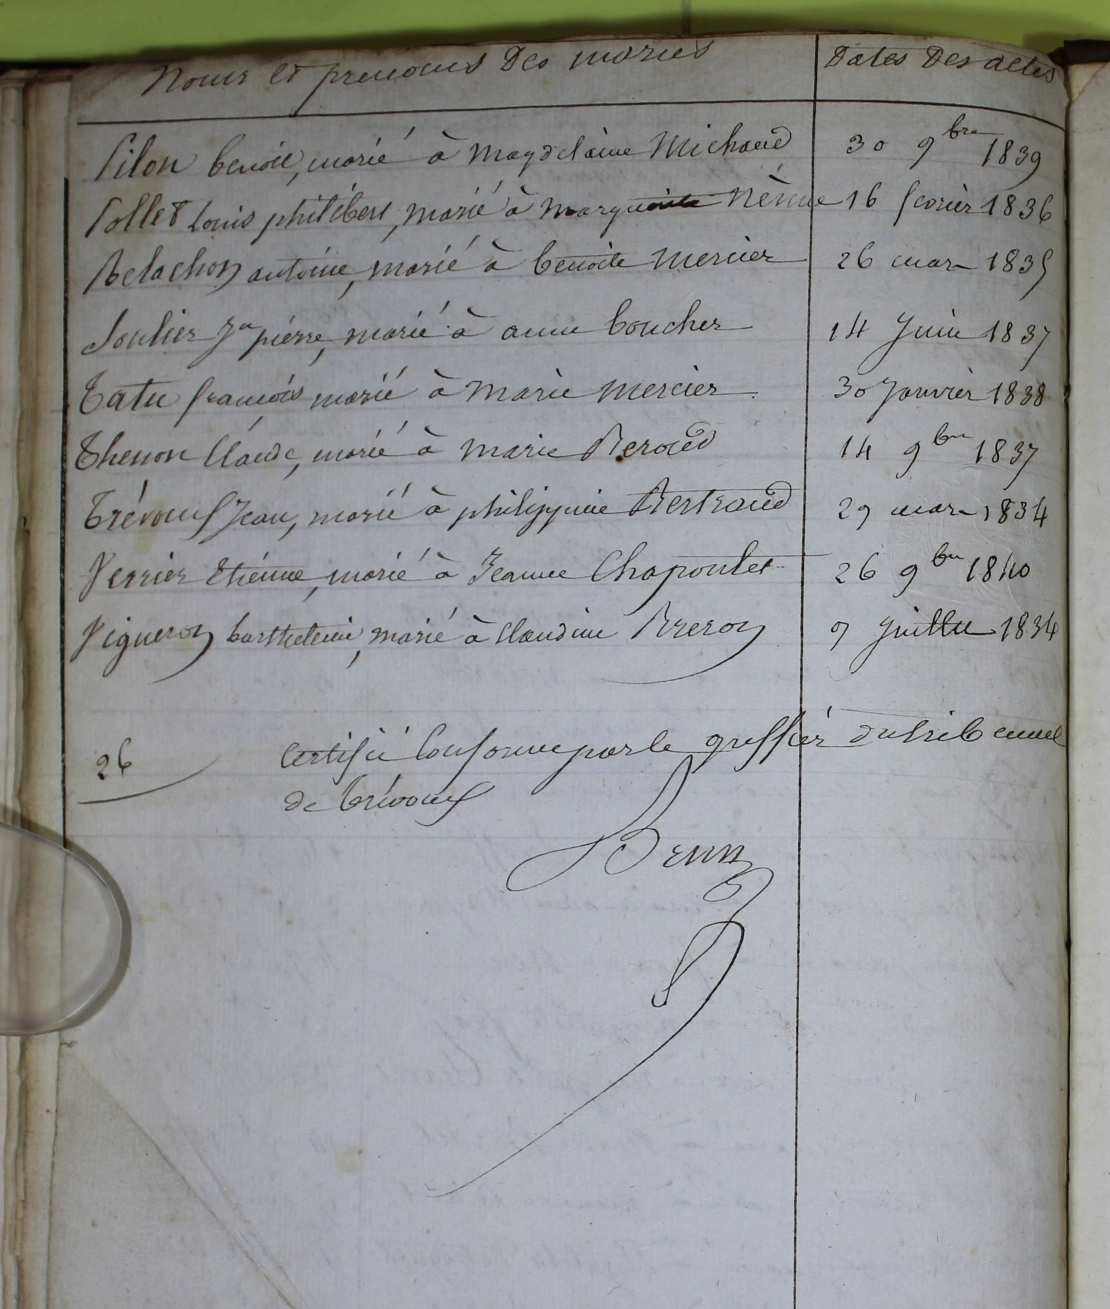 Noms et prenoms des mariés Dates des actes
Pilon benoit, marié à magdelaine Michaud 30 9bre 1839
Pollet Louis philibert, marié à marguerite Nême 16 fevrier 1836
Relachon antoine, marié à benoite mercier 26 mars 1835
Soulier Jn pierre, marié à anne boucher 14 Juin 1837
Tatu françois marié à marie mercier 30 Janvier 1838
Thenon Claude, marié à marie Beroud 14 9bre 1837
Trévoux Jean, marié à philippine Bertraud 29 mars 1834
Verrier Etienne, marié à Jeanne Chapoulet 26 9bre 1840
Vigneron barthelemi, marié à Claudine Breron 9 Juillet 1834
26 Certifié Conforme par le greffier du tribunal
de trévoux